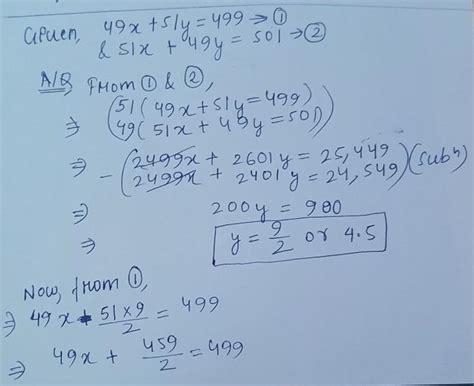 Given, 49x + 51y = 499 → ①
& 51x + 49y = 501 → ②
A/Q, From ① & ②,
⇒ (51(49x + 51y = 499)
49(51x + 49y = 501))
⇒ -(2499x + 2601y = 25,449
2499x + 2401y = 24,549)(subⁿ)
⇒ 200y = 900
⇒ y = 9/2 or 4.5
Now, from ①,
⇒ 49x + 51×9/2 = 499
⇒ 49x + 459/2 = 499